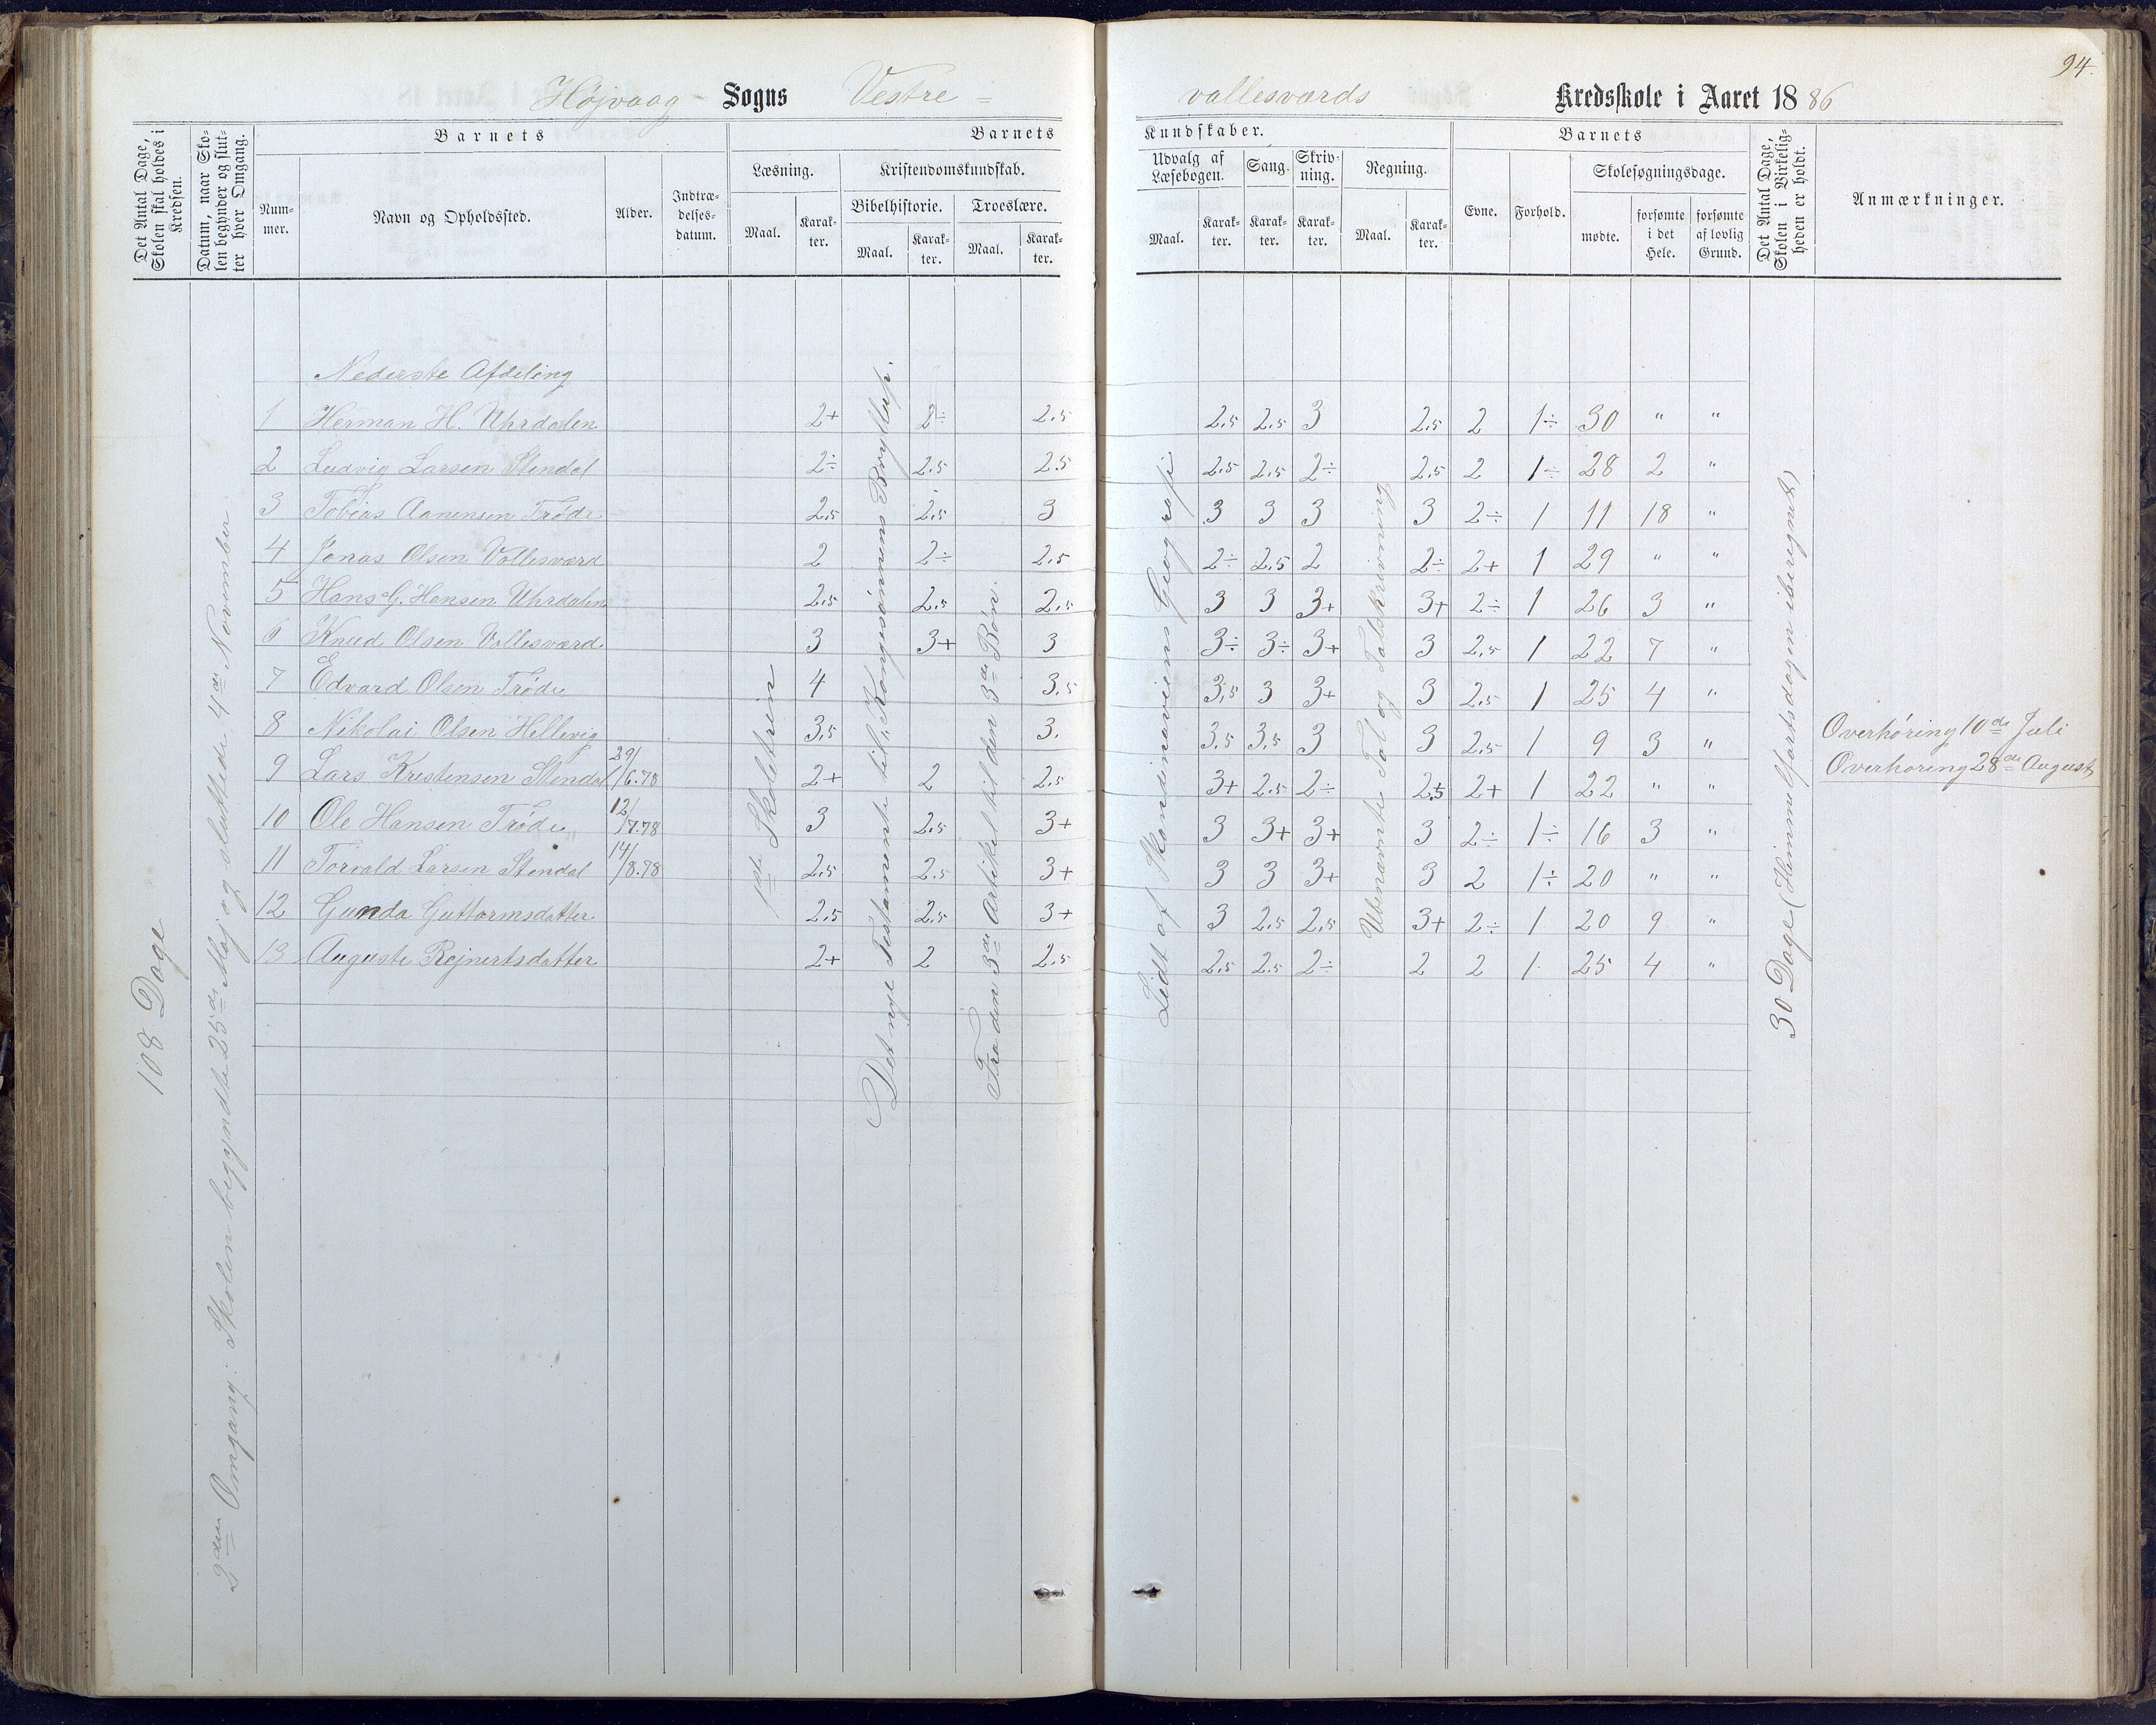 94.
Højvaag Sogns Vestre =
vallesværds Kredsskole i Aaret 1886
Det Antal Dage, Skolen skal holdes i Kredsen.
Datum, naar Skolen begynder og slutter hver Omgang.
Barnets
Nummer.
Navn og Opholdssted.
Alder.
Indtrædelsesdatum.
Barnets
Læsning.
Maal.
Karakter.
Kristendomskundskab.
Bibelhistorie.
Maal.
Karakter.
Troeslære.
Maal.
Karakter.
Kundskaber.
Udvalg af Læsebogen.
Maal.
Karakter.
Sang.
Karakter.
Skrivning.
Karakter.
Regning.
Maal.
Karakter.
Barnets
Evne.
Forhold.
Skolesøgningsdage.
mødte.
forsømte i det Hele.
forsømte af lovlig Grund.
Det Antal Dage, Skolen i Virkeligheden er holdt.
Anmærkninger.
108 Dage
2den Omgang: Skolen begyndte 25de Maj og sluttede 4de November
Nederste Afdeling
1 Herman H. Uhrdalen 2+ 2÷ 2.5 2.5 2.5 3 2.5 2 1÷ 30 " "
2 Ludvig Larsen Stendal 2÷ 2.5 2.5 2.5 2.5 2÷ 2.5 2 1÷ 28 2 "
3 Tobias Aanensen Trøde 2.5 2.5 3 3 3 3 3 2÷ 1 11 18 "
4 Jonas Olsen Vallesværd 2 2÷ 2.5 2÷ 2.5 2 2÷ 2+ 1 29 " "
5 Hans G. Hansen Uhrdalen 2.5 2.5 2.5 3 3 3+ 3+ 2÷ 1 26 3 "
6 Knud Olsen Vallesværd 3 3+ 3 3÷ 3÷ 3+ 3 2.5 1 22 7 "
7 Edvard Olsen Trøde 4 3.5 3.5 3 3+ 3 2.5 1 25 4 "
8 Nikolai Olsen Hellevig 3.5 3. 3.5 3.5 3 3 2.5 1 9 3 "
9 Lars Kristensen Stendal 29/6.78 2+ 2 2.5 3+ 2.5 2÷ 2.5 2+ 1 22 " "
10 Ole Hansen Trøde 12/7.78 3 2.5 3+ 3 3+ 3+ 3 2÷ 1÷ 16 3 "
11 Torvald Larsen Stendal 14/8.78 2.5 2.5 3+ 3 3 3+ 3 2 1÷ 20 " "
12 Gunda Guttormsdatter 2.5 2.5 3+ 3 2.5 2.5 3+ 2÷ 1 20 9 "
13 Auguste Rejnertsdatter 2+ 2 2.5 2.5 2.5 2÷ 2 2 1 25 4 "
1ste Skoletrin
Det nye Testamente til "Kongesønnens Bryllup".
Fra den 3de Artikel til den 3de Bøn.
Lidt af Skandinaviens Geografi
Ubenævnte Tal og Talskrivning
30 Dage (Himmelfartsdagen iberegnet)
Overhøring 10de Juli
Overhøring 28de August